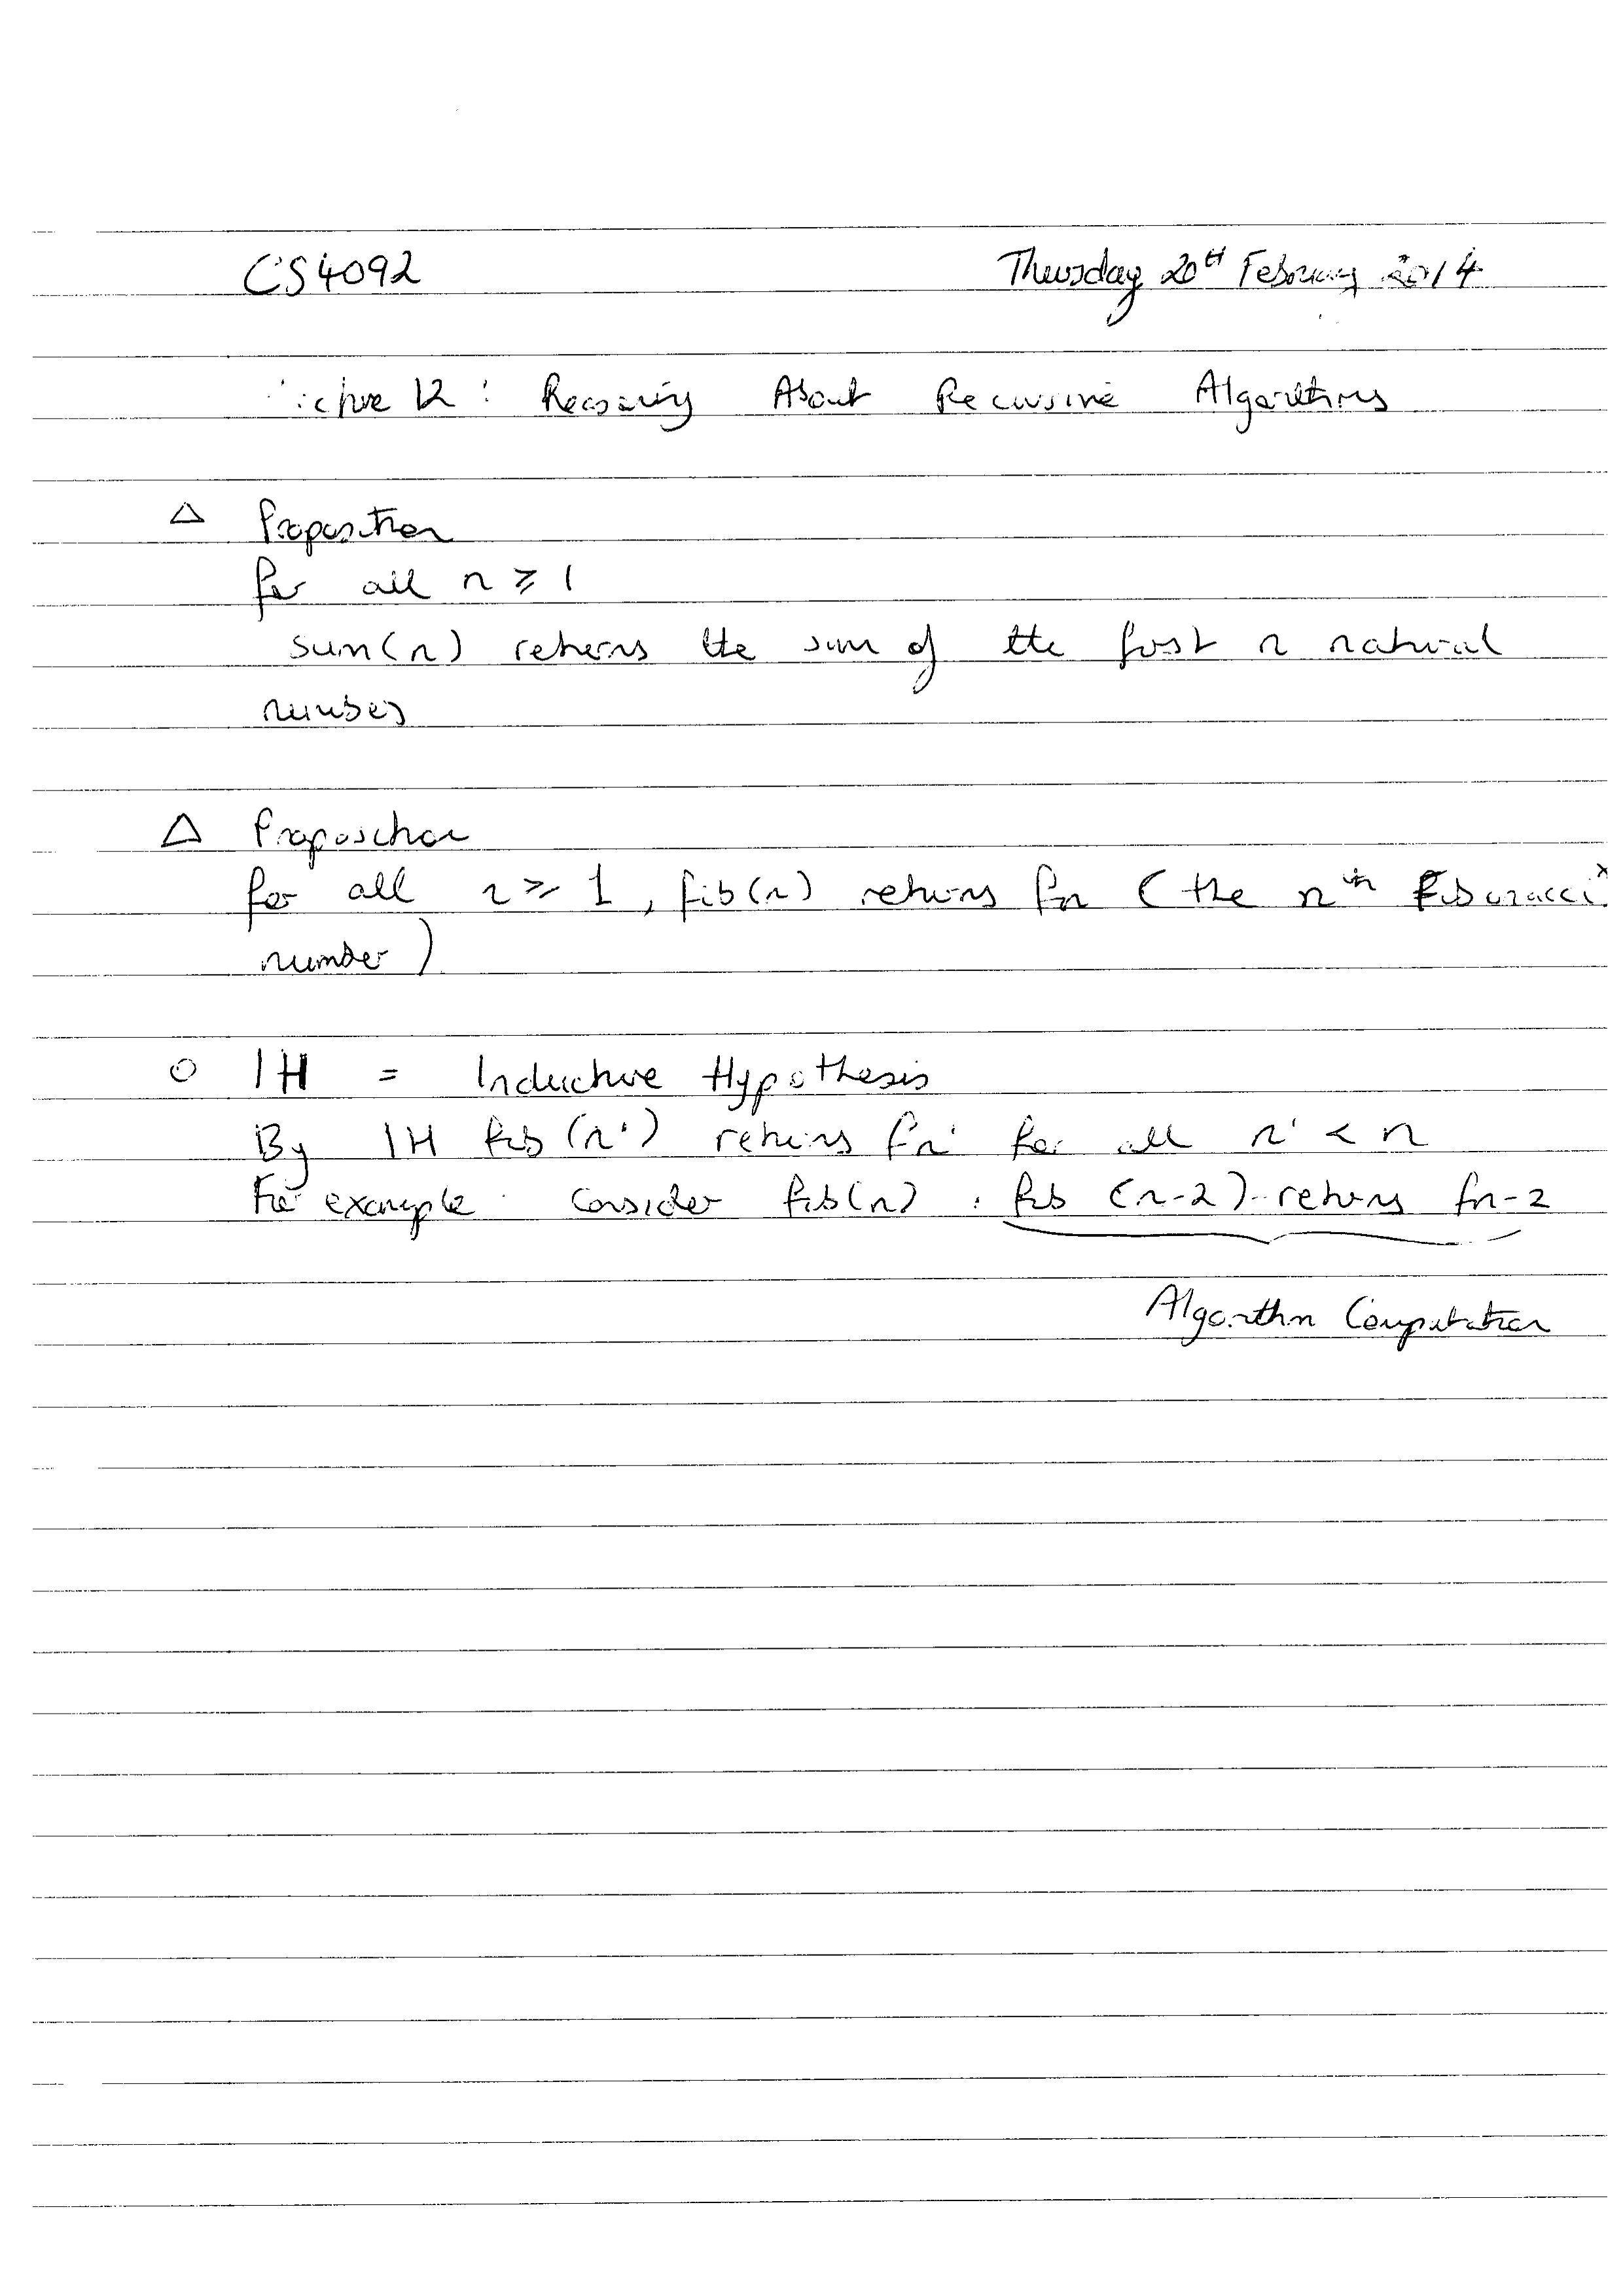 CS4092 Thursday 20th February 2014
Lecture 12 : Reasoning About Recursive Algorithms
△ Proposition
for all n ≥ 1
sum(n) returns the sum of the first n natural
numbers
△ Proposition
for all n ≥ 1, fib(n) returns fn (the nth Fibonacci
number)
○ IH = Inductive Hypothesis
By IH fib(n') returns fn' for all n' < n
For example : consider fib(n) : fib (n-2) returns fn-2
Algorithm Computation